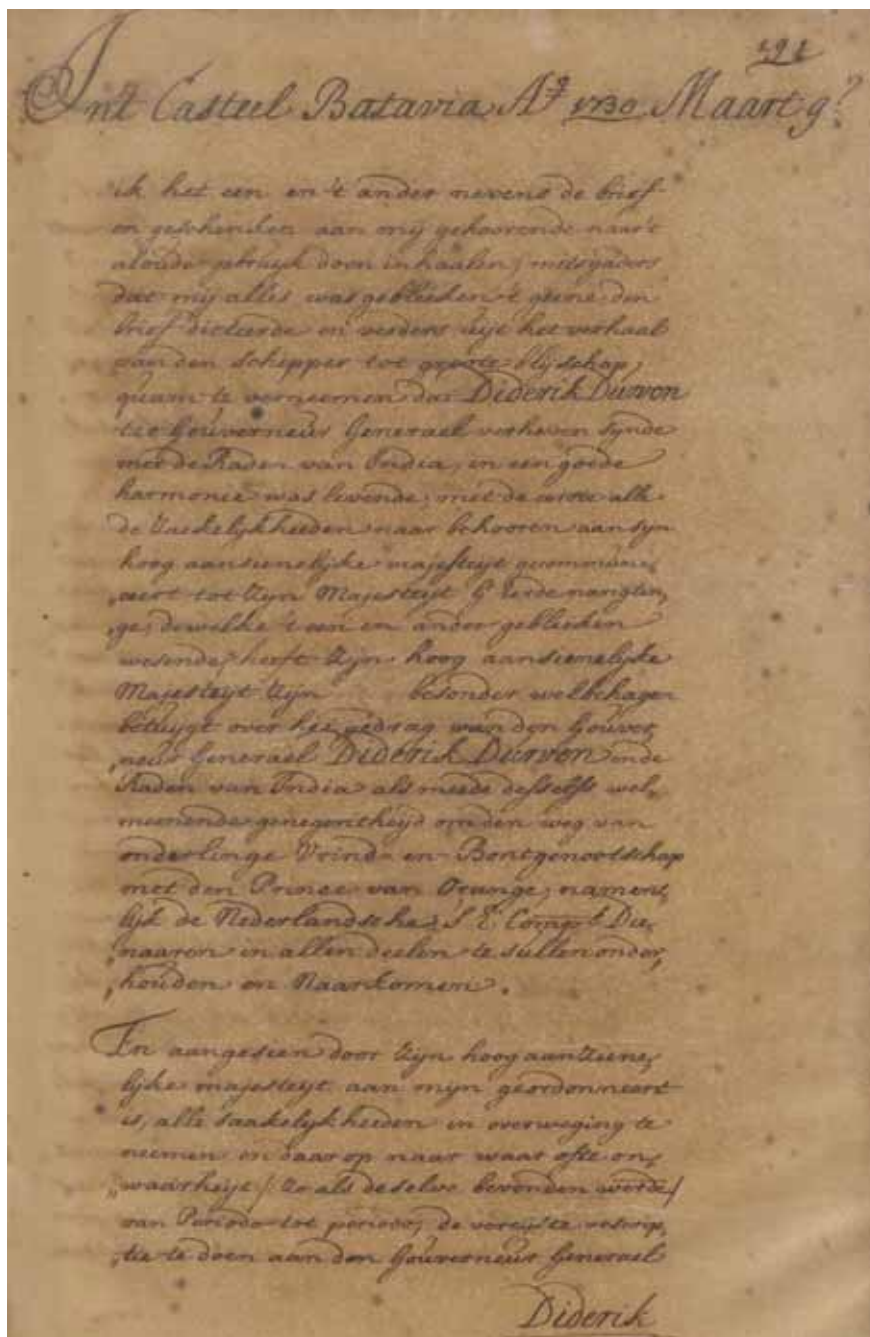 291
Int Casteel Batavia Aº 1730 Maart 9?
ik het een en 't ander nevens de brief
en geschenken aan mij gehoorende naar 't
aloude gebruijk doen inhaalen, mitsgaders
dat mij alles was gebleeken 't geene den
brief dicteerde en verders uijt het verhaal
van den schipper tot groote blijschap,
quam te verneemen dat Diderik Durven
tot Gouverneur Generael verheven synde
met de Raden van India, in een goede
harmonie was levende, met de alle
de Zaekelijkheeden naar behooren aan syn
hoog aansienelijke majesteijt gecommuni„
„ceert tot Zijn Majesteijt
„ge, dewelke 't een en ander gebleeken
wesende, heeft Zijn hoog aansienelijke
Majesteijt Zijn besonder welbehagen
betuijgt over het gedrag van den Gouver„
„neur Generael Diderik Durven ende
Raden van India als meede desselfs wel„
meenende genegentheijd om den weg van
onderlinge Vrind- en Bontgenootschap
met den Prince van Orange, nament„
lijk de Nederlandsche Compt. Die„
„naaren in allen deelen te sullen onder„
„houden en Naarkomen.
En aangesien door Zijn hoog aanZiene„
lijke majesteijt aan mijn geordonneert
is, alle saakelijkheeden in overweging te
neemen en daar op naar waar ofte on„
„waarheijt / Zo als deselve bevonden werde /
van Periode tot periode, de vereijste rescrip„
„tie te doen aan den Gouverneur Generael
Diderik